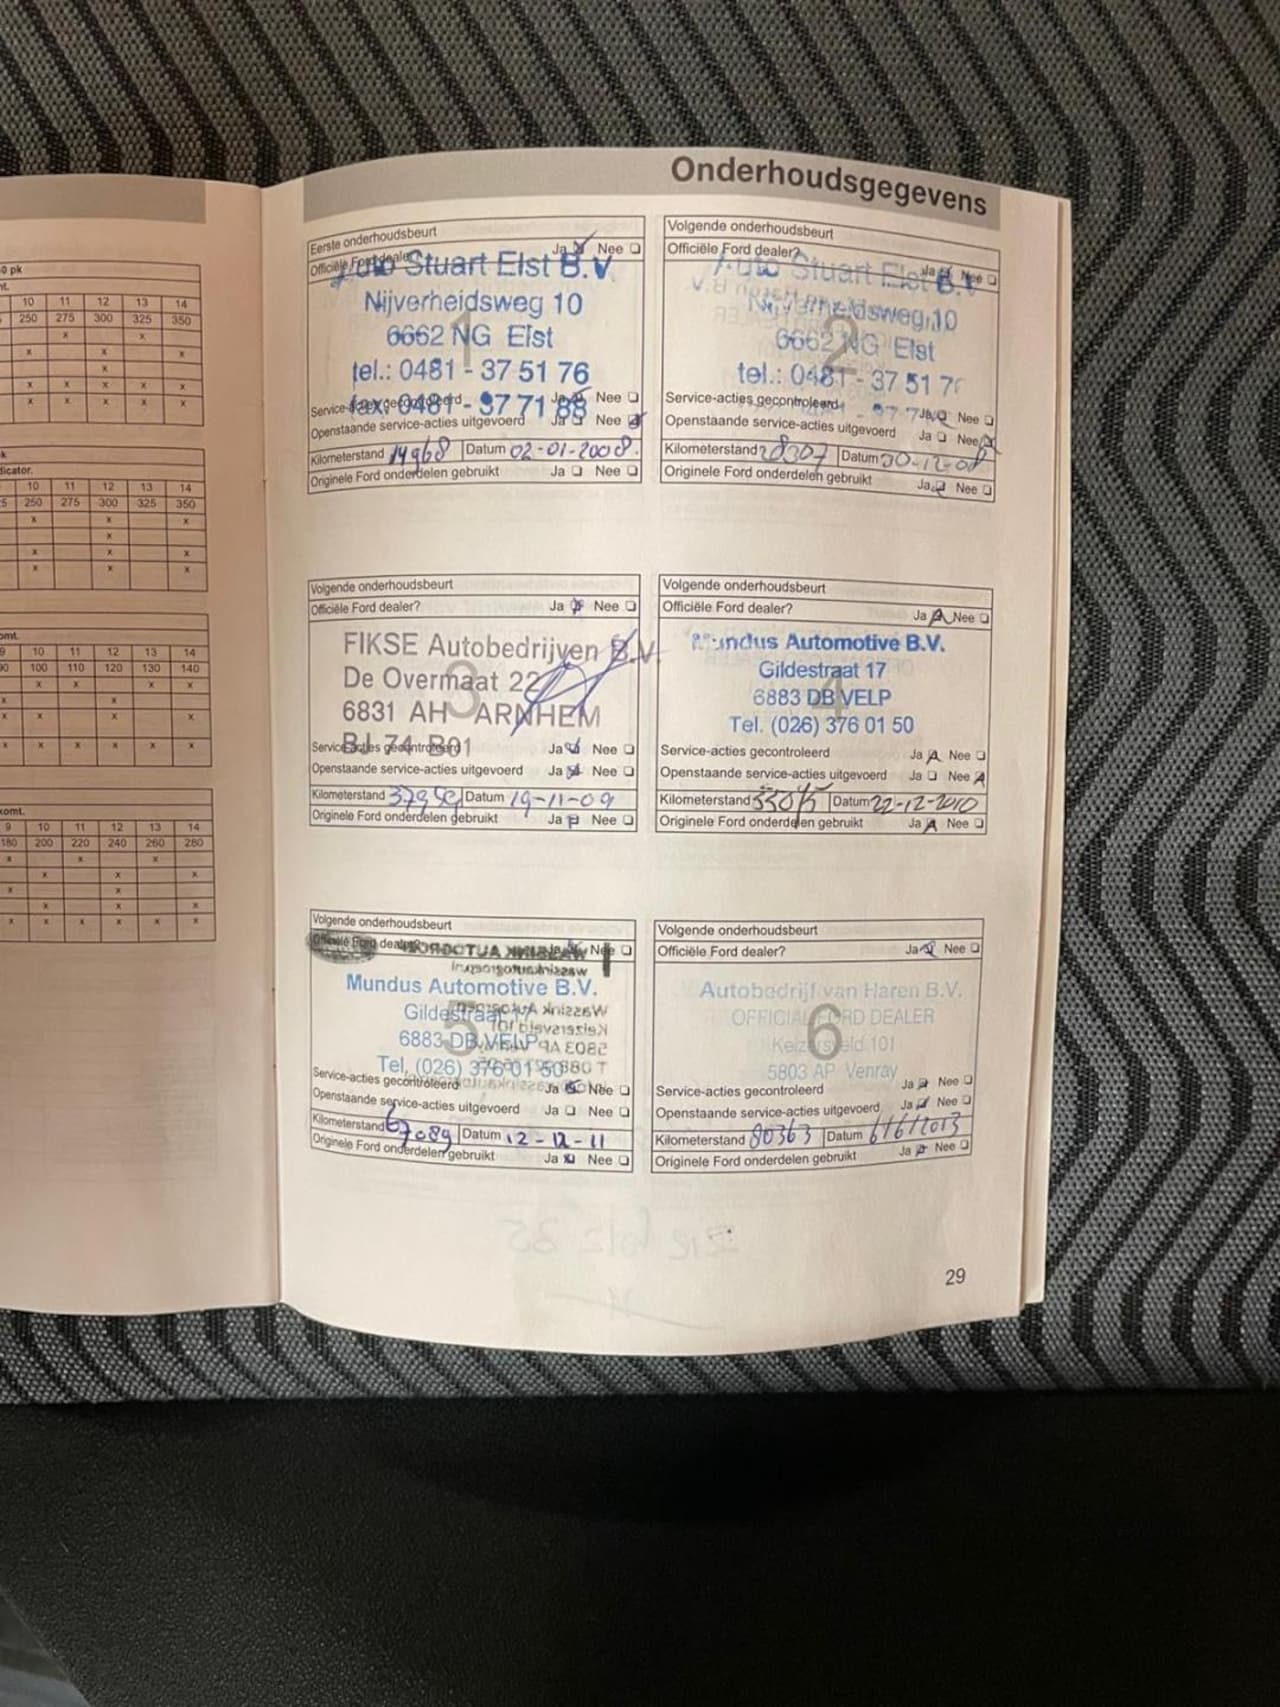 Onderhoudsgegevens
0 pk
nt.
10 11 12 13 14
250 275 300 325 350
x x
x x x
x
x x x x x
x x x x x
k
dicator.
10 11 12 13 14
5 250 275 300 325 350
x x x
x
x x x
x x x
omt.
9 10 11 12 13 14
90 100 110 120 130 140
x x x x
x x
x x x x
x x x x x x
komt.
9 10 11 12 13 14
180 200 220 240 260 280
x x x
x x x
x x
x x x
x x x x x x
Eerste onderhoudsbeurt
Officiële Ford dealer? Ja Nee
Auto Stuart Elst B.V
Nijverheidsweg 10
6662 NG Elst
1
tel.: 0481 - 37 51 76
fax: 0481 - 37 71 88
Service-acties gecontroleerd Ja Nee
Openstaande service-acties uitgevoerd Ja Nee
Kilometerstand 14968 Datum 02-01-2008.
Originele Ford onderdelen gebruikt Ja Nee
Volgende onderhoudsbeurt
Officiële Ford dealer? Ja Nee
Auto Stuart Elst B.V
Nijverheidsweg 10
6662 NG Elst
2
tel.: 0481 - 37 51 7
Service-acties gecontroleerd Ja Nee
Openstaande service-acties uitgevoerd Ja Nee
Kilometerstand 28307 Datum 30-12-08
Originele Ford onderdelen gebruikt Ja Nee
Volgende onderhoudsbeurt
Officiële Ford dealer? Ja Nee
FIKSE Autobedrijven B.V.
De Overmaat 22
3
6831 AH ARNHEM
BJ 74 B01
Service-acties gecontroleerd Ja Nee
Openstaande service-acties uitgevoerd Ja Nee
Kilometerstand Datum 19-11-09
Originele Ford onderdelen gebruikt Ja Nee
Volgende onderhoudsbeurt
Officiële Ford dealer? Ja Nee
Mundus Automotive B.V.
Gildestraat 17
6883 DB VELP
4
Tel. (026) 376 01 50
Service-acties gecontroleerd Ja Nee
Openstaande service-acties uitgevoerd Ja Nee
Kilometerstand Datum 22-12-2010
Originele Ford onderdelen gebruikt Ja Nee
Volgende onderhoudsbeurt
Officiële Ford dealer? Ja Nee
Mundus Automotive B.V.
Gildestraat 17
5
6883 DB VELP
Tel. (026) 376 01 50
Service-acties gecontroleerd Ja Nee
Openstaande service-acties uitgevoerd Ja Nee
Kilometerstand 67089 Datum 12-12-11
Originele Ford onderdelen gebruikt Ja Nee
Volgende onderhoudsbeurt
Officiële Ford dealer? Ja Nee
Autobedrijf van Haren B.V.
OFFICIAL FORD DEALER
6
Keizersveld 101
5803 AP Venray
Service-acties gecontroleerd Ja Nee
Openstaande service-acties uitgevoerd Ja Nee
Kilometerstand 80363 Datum 6/6/2013
Originele Ford onderdelen gebruikt Ja Nee
29